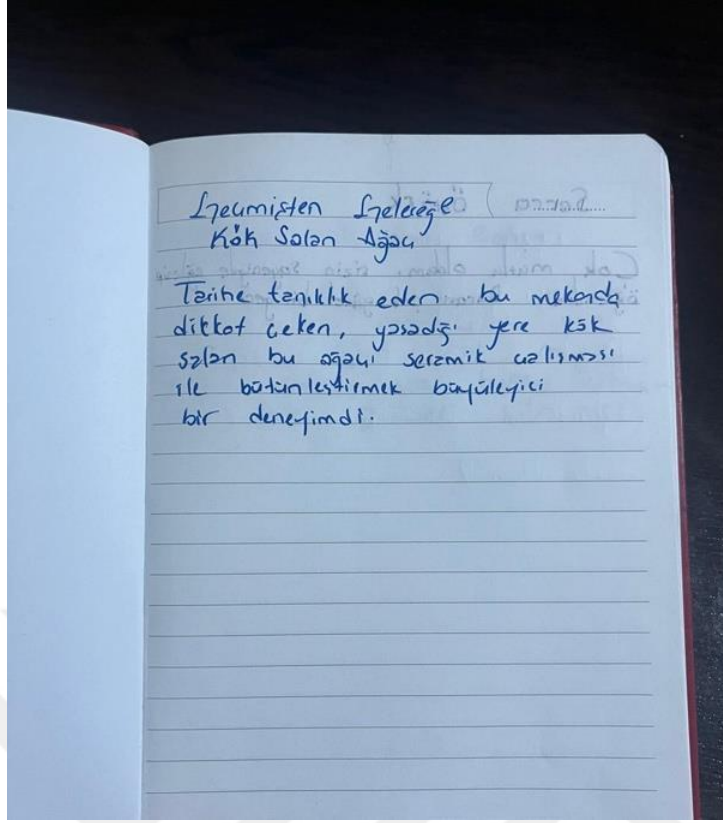 Geçmişten Geleceğe
Kök Salan Ağacı
Tarihe tanıklık eden bu mekanda
dikkat çeken, yaşadığı yere kök
salan bu ağacı seramik çalışması
ile bütünleştirmek büyüleyici
bir deneyimdi.